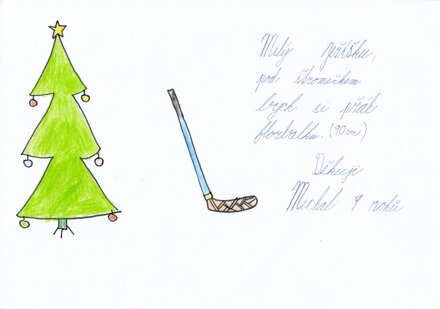 Milý Ježíšku,
pod stromečkem
bych si přál
florbalku. (90cm)
Děkuji
Michal 9 roků